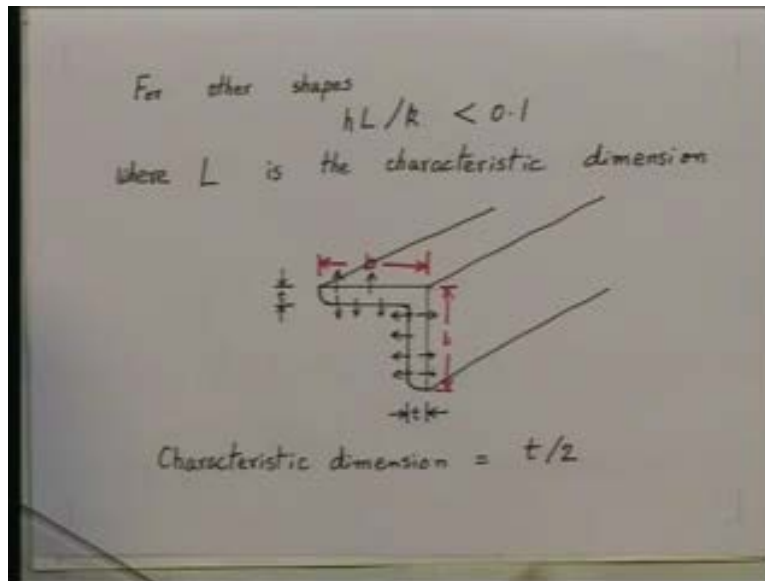 For other shapes
hL/k < 0.1
where L is the characteristic dimension
b
t
b
t
Characteristic dimension = t/2